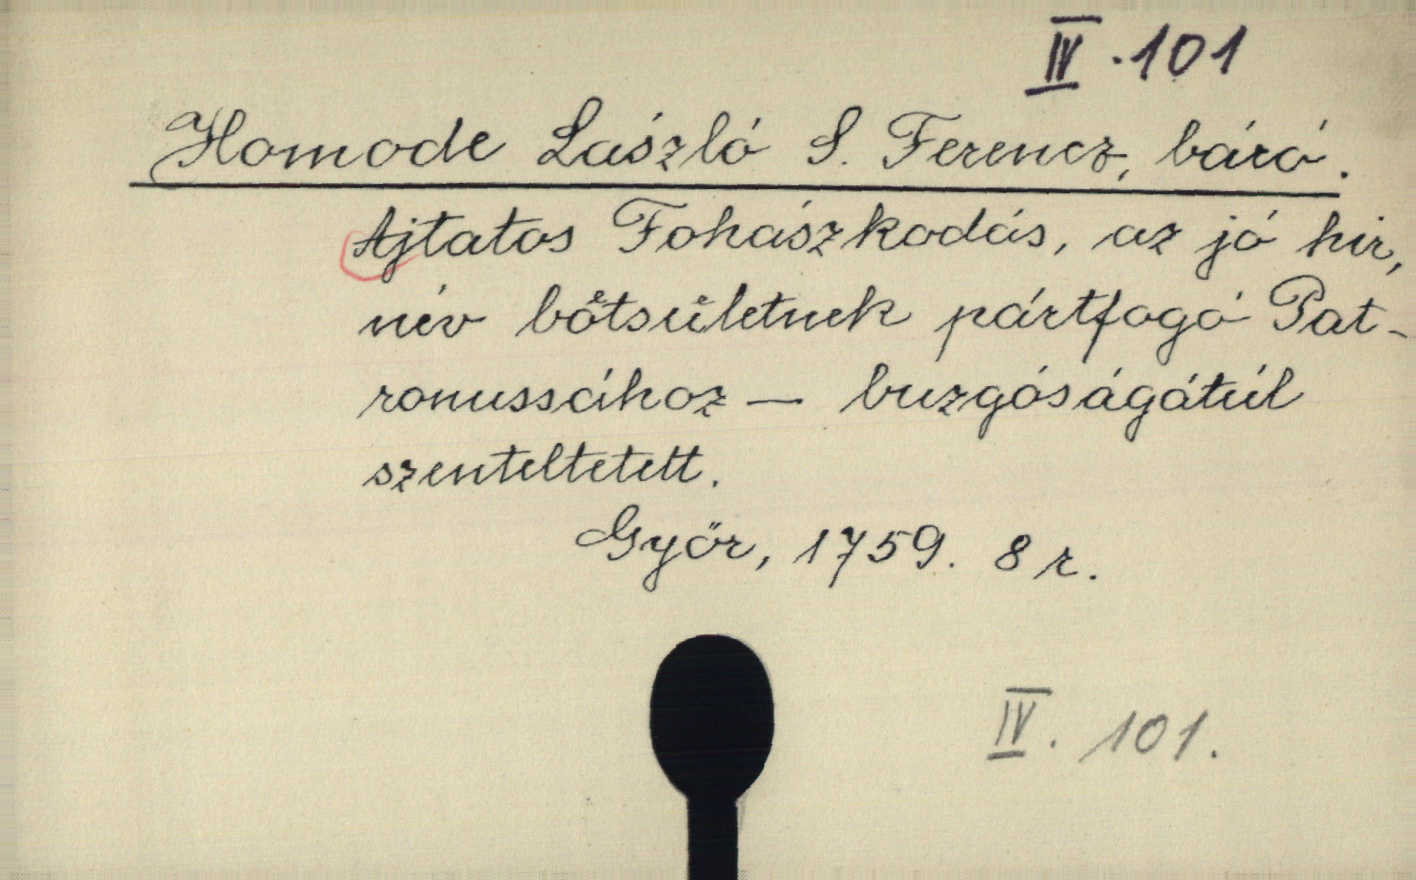 IV. 101
Homode László S. Ferencz, báró.
Ajtatos Fohászkodás, az jó hir,
név bőtsületnek pártfogó Pat-
ronussához — buzgóságátúl
szenteltetett.
Győr, 1759. 8 r.
IV. 101.